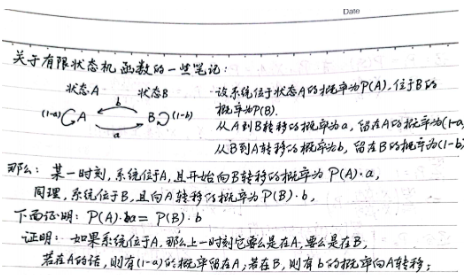 Date
关于有限状态机函数的一些笔记:
状态A 状态B
该系统位于状态A的概率为P(A),位于B的
概率为P(B).
(1-a) A b B (1-b)
a
从A到B转移的概率为a, 留在A的概率为(1-a
从B到A转移的概率为b, 留在B的概率为(1-b)
那么: 某一时刻,系统位于A,且开始向B转移的概率为 P(A)·a,
同理,系统位于B,且向A转移的概率为 P(B)·b,
下面证明: P(A)·a = P(B)·b
证明: 如果系统位于A,那么上一时刻它要么是在A,要么是在B,
若在A的话,则有(1-a)的概率留在A;若在B,则有b的概率向A转移;